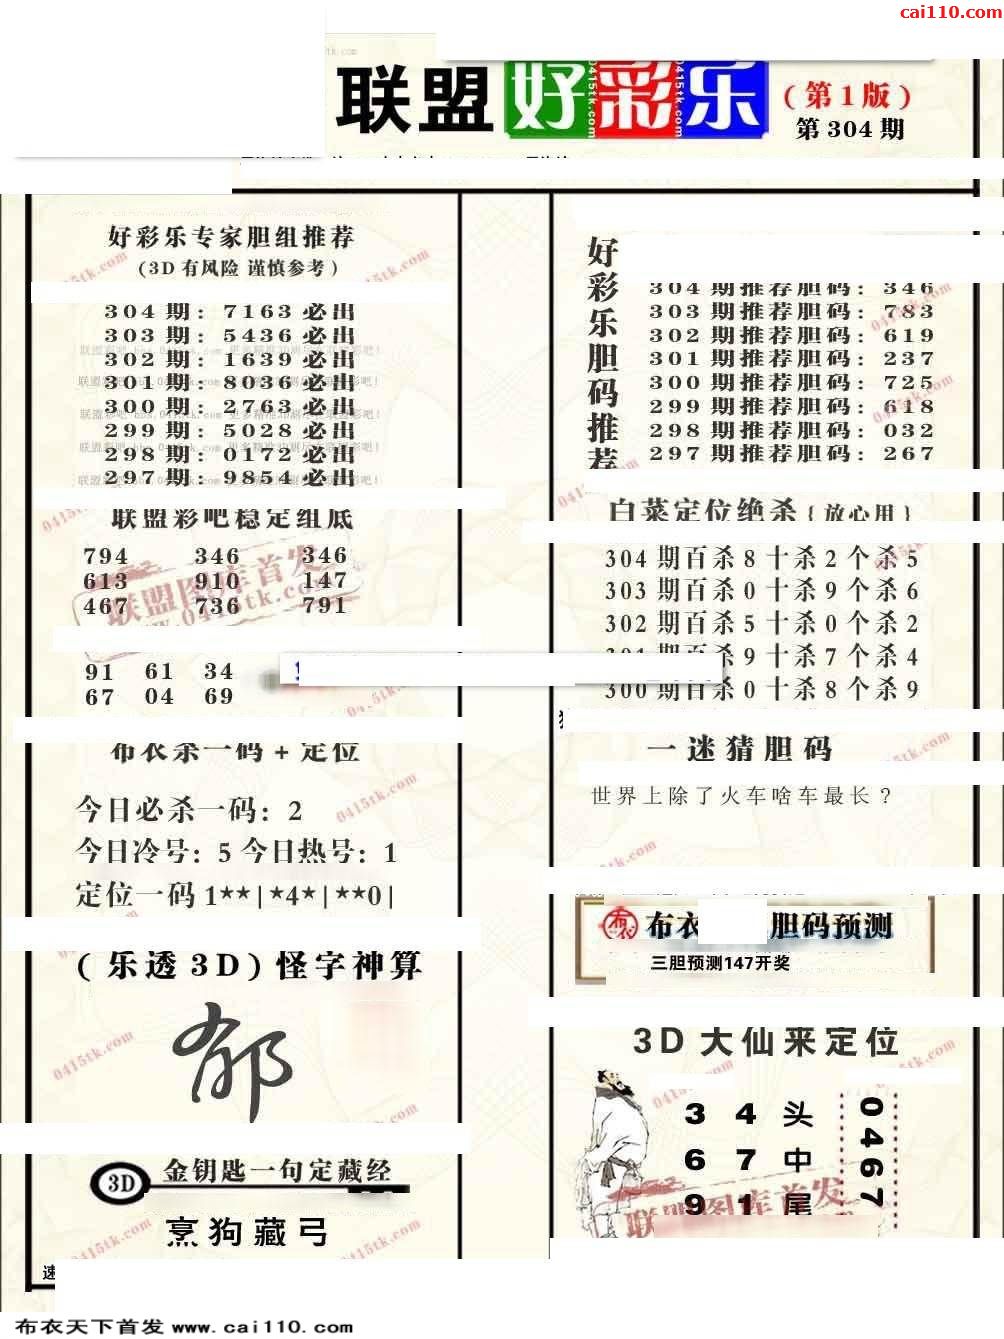 cai110.com
联盟好彩乐
(第1版)
第304期
好彩乐专家胆组推荐
(3D有风险 谨慎参考)
304期: 7163必出
303期: 5436必出
302期: 1639必出
301期: 8036必出
300期: 2763必出
299期: 5028必出
298期: 0172必出
297期: 9854必出
联盟彩吧稳定组底
794 346 346
613 910 147
467 736 791
91 61 34
67 04 69
布衣杀一码+定位
今日必杀一码: 2
今日冷号: 5 今日热号: 1
定位一码 1**|*4*|**0|
(乐透3D)怪字神算
郁
3D 金钥匙一句定藏经
烹狗藏弓
速
好彩乐胆码推荐
304期推荐胆码: 346
303期推荐胆码: 783
302期推荐胆码: 619
301期推荐胆码: 237
300期推荐胆码: 725
299期推荐胆码: 618
298期推荐胆码: 032
297期推荐胆码: 267
白菜定位绝杀{放心用}
304期百杀8十杀2个杀5
303期百杀0十杀9个杀6
302期百杀5十杀0个杀2
301期百杀9十杀7个杀4
300期百杀0十杀8个杀9
一迷猜胆码
世界上除了火车啥车最长?
布衣 胆码预测
三胆预测147开奖
3D大仙来定位
3 4 头
6 7 中
9 1 尾
0467
联盟图库首发
布衣天下首发 www.cai110.com